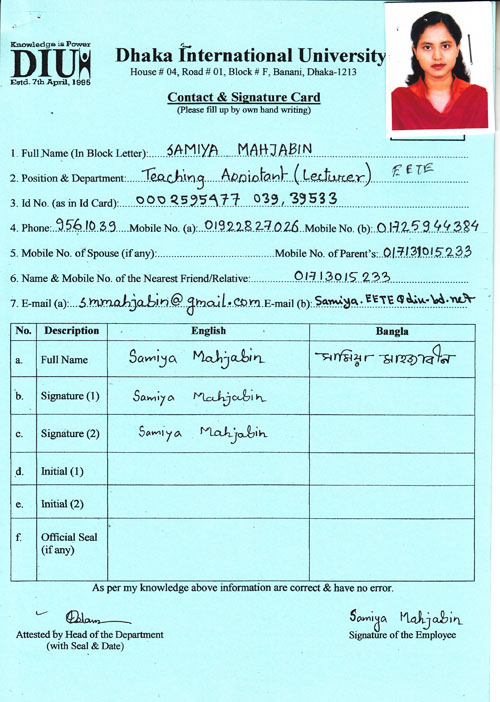 Knowledge is Power
DIU
Estd. 7th April, 1995
Dhaka International University
House # 04, Road # 01, Block # F, Banani, Dhaka-1213
Contact & Signature Card
(Please fill up by own hand writing)
1. Full Name (In Block Letter): SAMIYA MAHJABIN
2. Position & Department: Teaching Assistant (Lecturer) EETE
3. Id No. (as in Id Card): 000 2595477 039, 39533
4. Phone: 9561039 Mobile No. (a): 01922827026 Mobile No. (b): 01725944384
5. Mobile No. of Spouse (if any): Mobile No. of Parent's: 01713015233
6. Name & Mobile No. of the Nearest Friend/Relative: 01713015233
7. E-mail (a): smmahjabin@gmail.com E-mail (b): Samiya.EETE@diu-bd.net
No. Description English Bangla
a. Full Name Samiya Mahjabin সামিয়া মাহজাবীন
b. Signature (1) Samiya Mahjabin
c. Signature (2) Samiya Mahjabin
d. Initial (1)
e. Initial (2)
f. Official Seal
(if any)
As per my knowledge above information are correct & have no error.
Samiya Mahjabin
Attested by Head of the Department Signature of the Employee
(with Seal & Date)